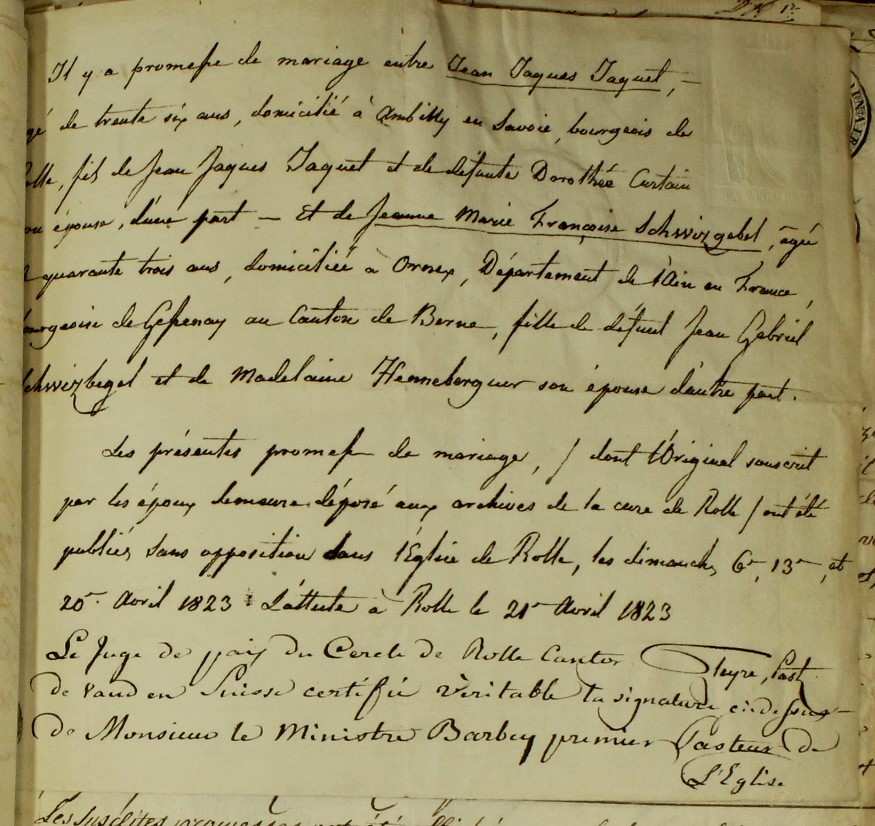 Il y a promesse de mariage entre Jean Jaques Jaquet, —
gé de trente six ans, domicilié à Ambilly en Savoie, bourgeois de
olle, fils de Jean Jaques Jaquet et de défunte Dorothée Curtain
épouse, d'une part — Et de Jeanne Marie Françoise Schwizgebel, âgée
quarante trois ans, domiciliée à Ornex, Département de l'Ain en France,
ourgeoise de Gessenay au Canton de Berne, fille de défunt Jean Gabriel
chwizbegel et de Madelaine Henneberguer son épouse d'autre part.
Les présentes promesses de mariage, / dont l'Original souscrit
par les époux demeure déposé aux archives de la cure de Rolle / ont été
publiées sans opposition dans l'Eglise de Rolle, les dimanches 6e, 13e, et
20e Avril 1823 L'atteste à Rolle le 21e Avril 1823
Le Juge de paix du Cercle de Rolle Canton Past.
de Vaud en Suisse certifie véritable la signature ci-dessus
de Monsieur le Ministre Barbey premier Pasteur de
L'Eglise
Les susdites promesses ont été